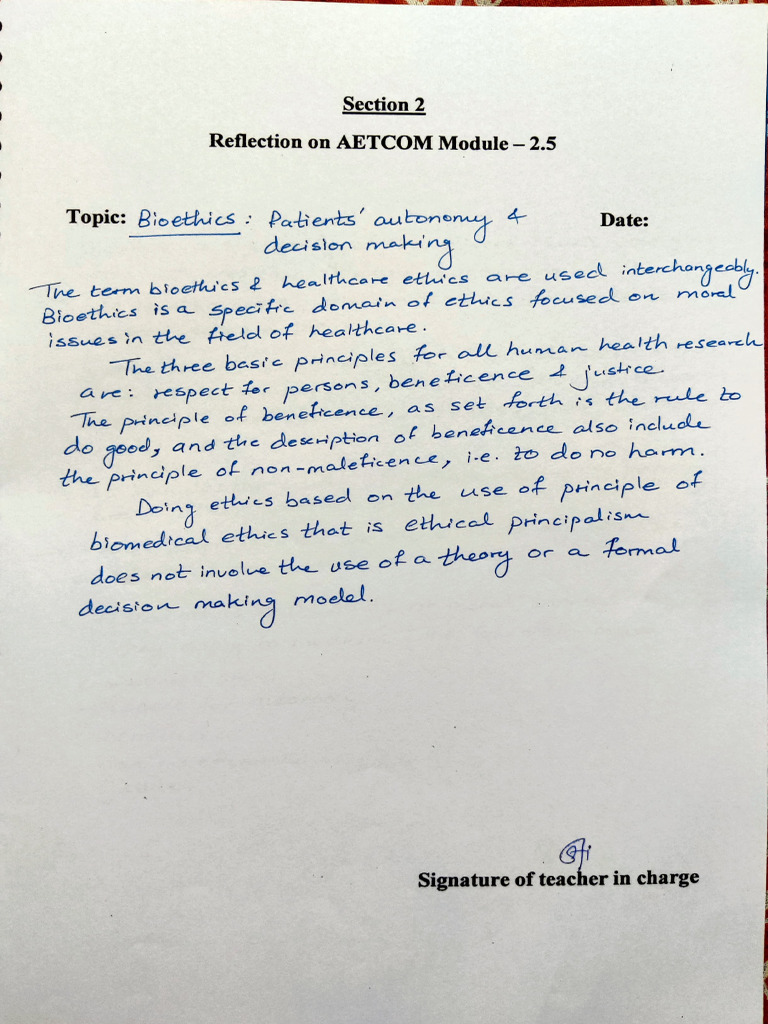 Section 2
Reflection on AETCOM Module – 2.5
Topic: Bioethics : Patients' autonomy & Date:
decision making
The term bioethics & healthcare ethics are used interchangeably.
Bioethics is a specific domain of ethics focused on moral
issues in the field of healthcare.
The three basic principles for all human health research
are: respect for persons, beneficence & justice.
The principle of beneficence, as set forth is the rule to
do good, and the description of beneficence also include
the principle of non-maleficence, i.e. to do no harm.
Doing ethics based on the use of principle of
biomedical ethics that is ethical principalism
does not involve the use of a theory or a formal
decision making model.
Signature of teacher in charge